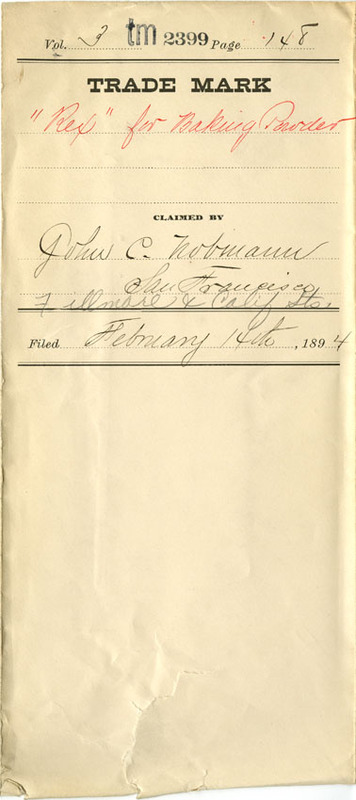 Vol. 3 tm 2399 Page 148
TRADE MARK
"Rex" for Baking Powder
CLAIMED BY
John C. Nobmann
San Francisco
Fillmore & Calif Sts.
Filed February 14th, 1894